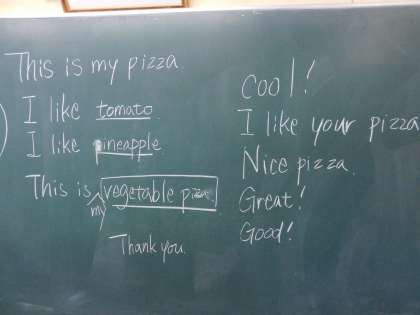 This is my pizza
I like tomato.
I like pineapple.
This is my vegetable pizza.
Thank you.
cool!
I like your pizza
Nice pizza.
Great!
Good!